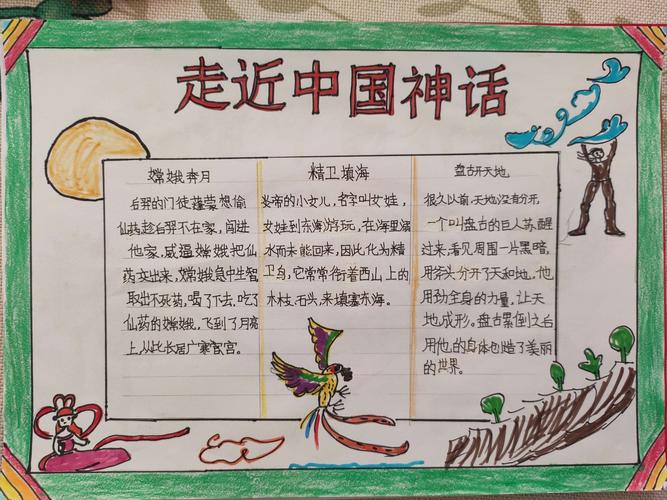 走近中国神话
嫦娥奔月
后羿的门徒蓬蒙想偷
仙药趁后羿不在家，闯进
他家，威逼嫦娥把仙
药交出来，嫦娥急中生智
取出不死药，喝了下去，吃了
仙药的嫦娥，飞到了月亮
上，从此长居广寒宫。
精卫填海
炎帝的小女儿，名字叫女娃，
女娃到东海游玩，在海里溺
水而未能回来，因此化为精
卫鸟，它常常衔着西山上的
木枝、石头，来填塞东海。
盘古开天地
很久以前，天地没有分开，
一个叫盘古的巨人苏醒
过来，看见周围一片黑暗，
用斧头分开了天和地，他
用劲全身的力量，让天
地成形。盘古累倒之后
用他的身体创造了美丽
的世界。